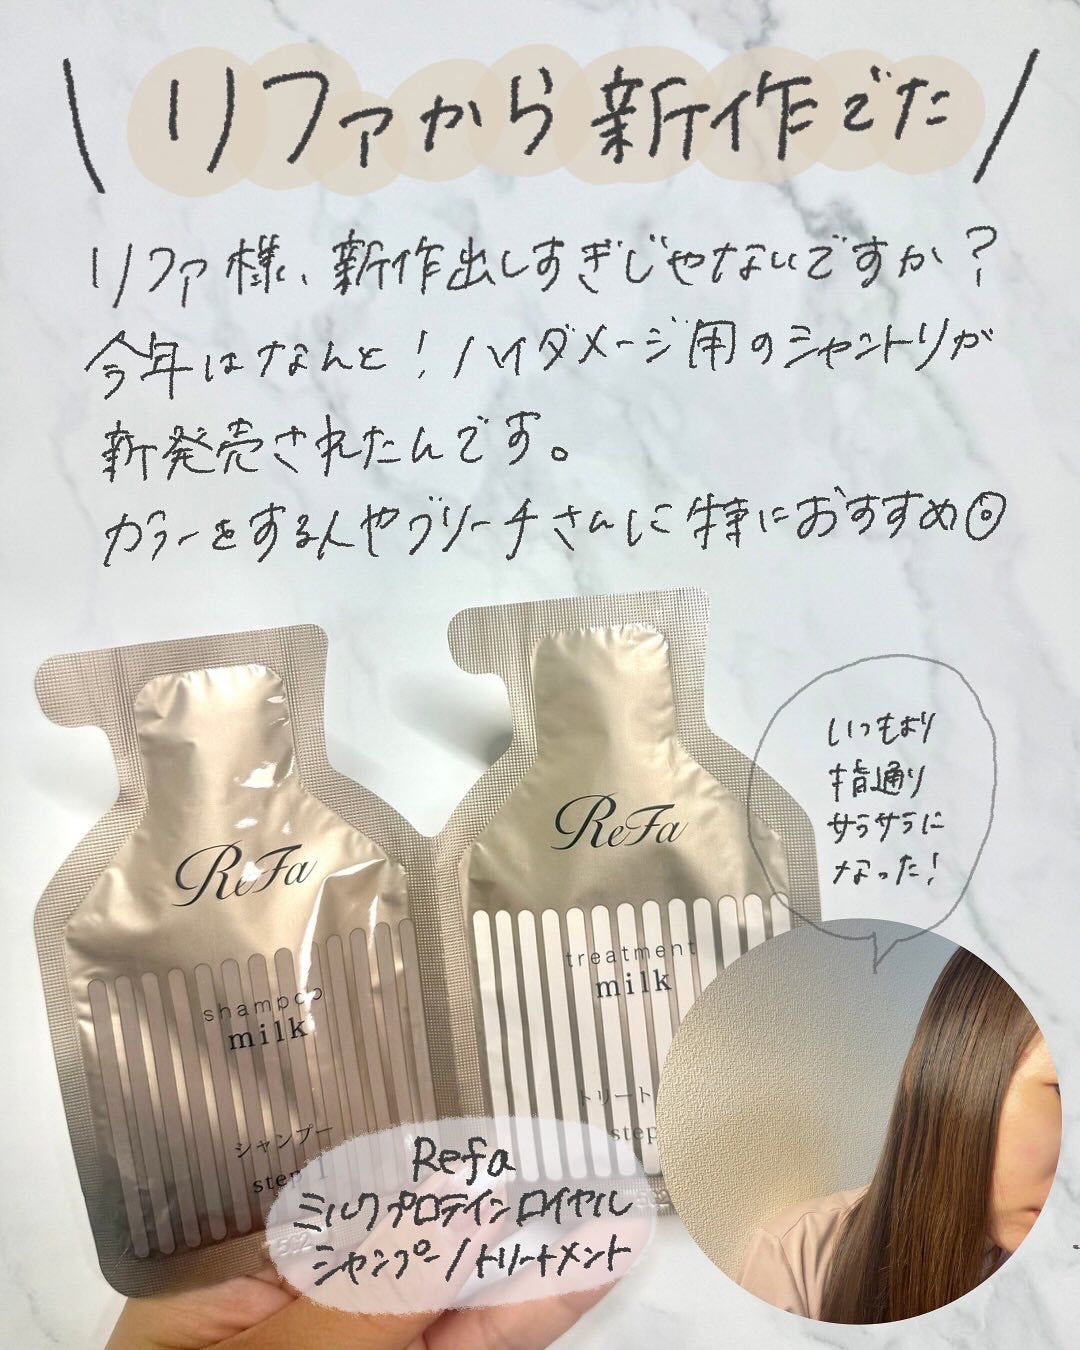 \ リファから新作でた /
リファ様、新作出しすぎじゃないですか?
今年はなんと!ハイダメージ用のシャントリが
新発売されたんです。
カラーをする人やブリーチさんに特におすすめ◎
いつもより
指通り
サラサラに
なった!
ReFa
shampoo
milk
シャンプー
step 1
ReFa
treatment
milk
トリート
step
Refa
ミルクプロテインロイヤル
シャンプー/トリートメント